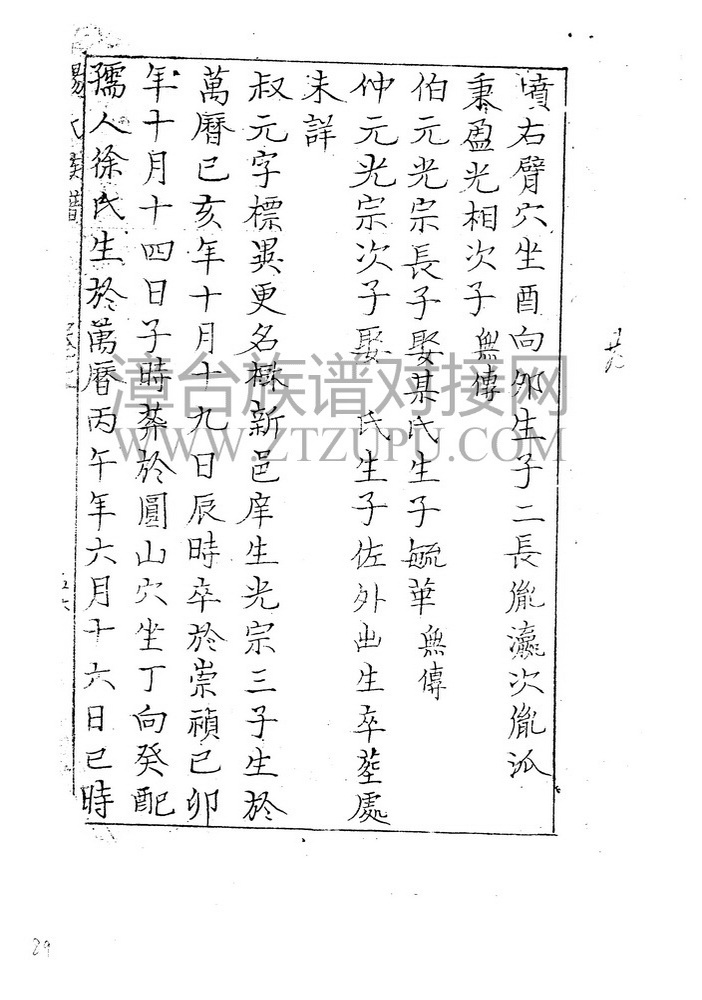 墳右臂穴坐酉向卯生子二長胤瀛次胤泒
秉盈光相次子無傳
伯元光宗長子娶某氏生子毓華無傳
仲元光宗次子娶 氏生子佐外出生卒塟處
未詳
叔元字標吳更名樾新邑庠生光宗三子生於
萬曆己亥年十月十九日辰時卒於崇禎己卯
年十月十四日子時葬於圓山穴坐丁向癸配
孺人徐氏生於萬曆丙午年六月十六日巳時
楊氏族譜
廿九
漳台族谱对接网
WWW.ZTZUPU.COM
29